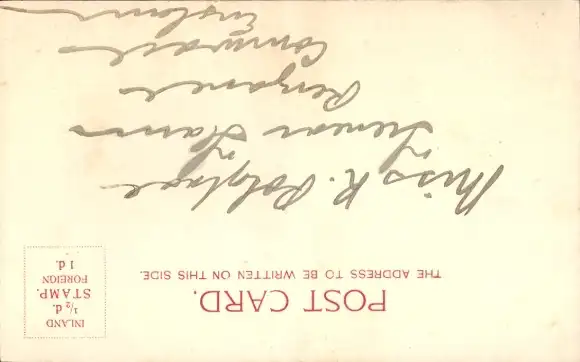 POST CARD.
THE ADDRESS TO BE WRITTEN ON THIS SIDE.
INLAND
½d.
STAMP.
FOREIGN
1d.
Miss K. Polglase
Farm
Penzance
Cornwall
England